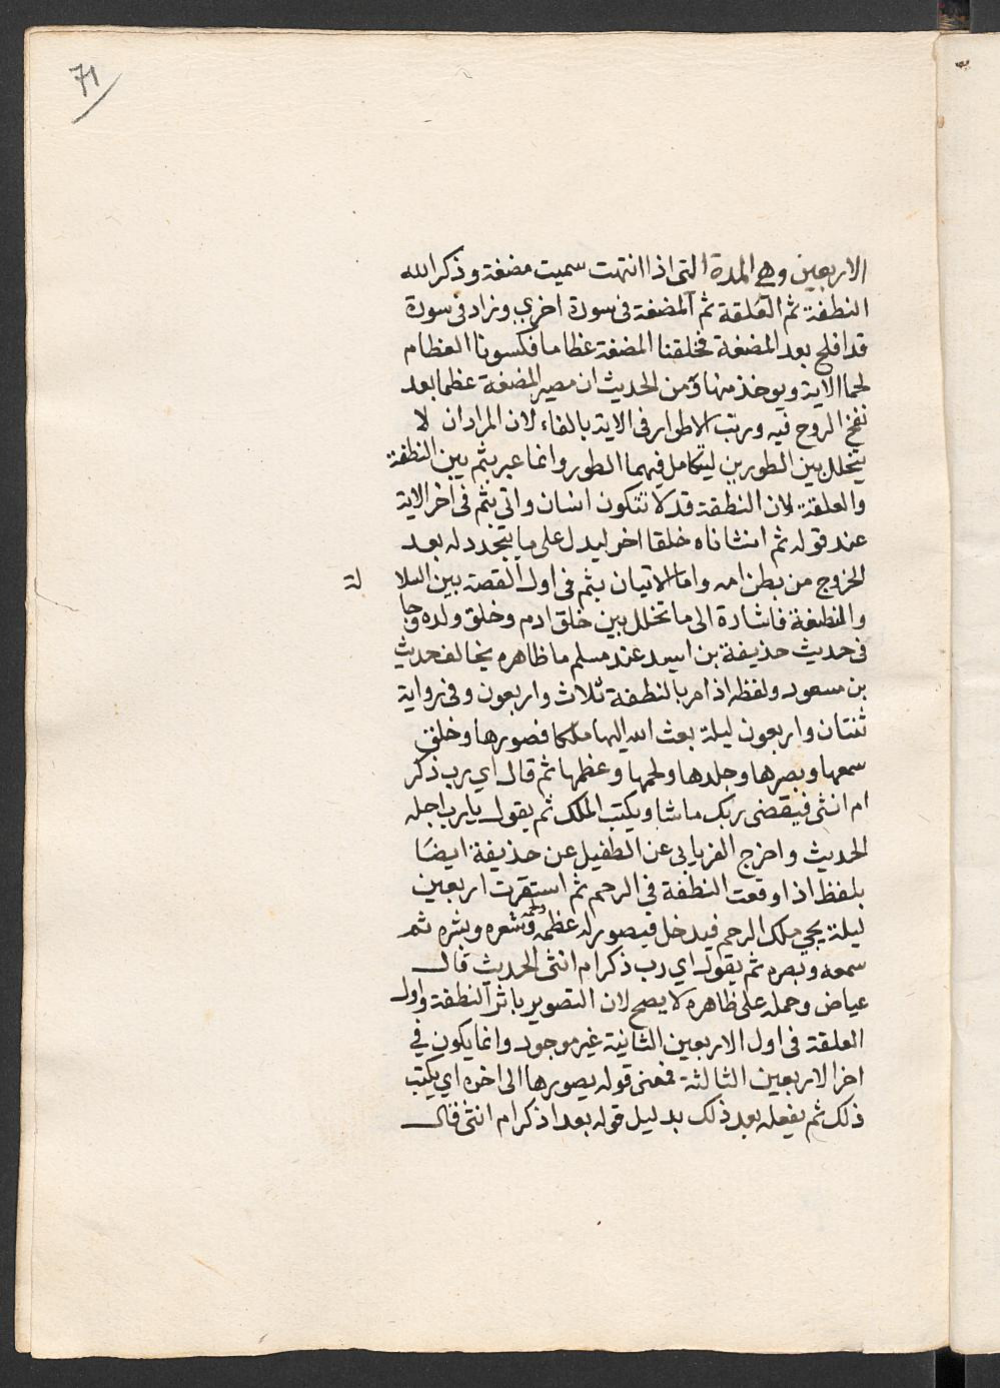 71
الاربعين وهي المدة التي اذا انتهت سميت مضغة وذكر الله
النطفة ثم العلقة ثم المضغة في سورة اخري وزاد في سورة
قد افلح بعد المضغة فخلقنا المضغة عظاما فكسونا العظام
لحما الاية ويوخذ منها ومن الحديث ان مصير المضغة عظما بعد
نفخ الروح فيه ورتب الاطوار في الاية بالفاء لان المراد ان لا
يتخلل بين الطورين ليتكامل فيهما الطور وانما عبر بثم بين النطفة
والعلقة لان النطفة قد لا تتكون انسان واتي بثم في اخر الاية
عند قوله ثم انشاناه خلقا اخر ليدل علي ما يتجدد له بعد
الخروج من بطن امه واما الاتيان بثم في اول القصة بين السلا لة
والنطفة فاشارة الي ما تخلل بين خلق ادم وخلق ولده وجا
في حديث حذيفة بن اسيد عند مسلم ما ظاهره يخالف حديث
بن مسعود ولفظه اذا مر بالنطفة ثلاث واربعون وفي رواية
ثنتان واربعون ليلة بعث الله اليها ملكا فصورها وخلق
سمعها وبصرها وجلدها ولحمها وعظمها ثم قال اي رب ذكر
ام انثي فيقضي ربك ما شا ويكتب الملك ثم يقول يا رب اجله
الحديث واخرج الفريابي عن الطفيل عن حذيفة ايضا
بلفظ اذا وقعت النطفة في الرحم ثم استقرت اربعين
ليلة يجي ملك الرحم فيدخل فيصور له عظمه ولحمه وشعره وبشره ثم
سمعه وبصره ثم يقول اي رب ذكر ام انثي الحديث قال
عياض وحمله علي ظاهره لا يصح لان التصوير باثر النطفة واول
العلقة في اول الاربعين الثانية غير موجود وانما يكون في
اخر الاربعين الثالثة فمعني قوله يصورها الي اخره اي يكتب
ذلك ثم يفعله بعد ذلك بدليل قوله بعد اذكر ام انثي قال